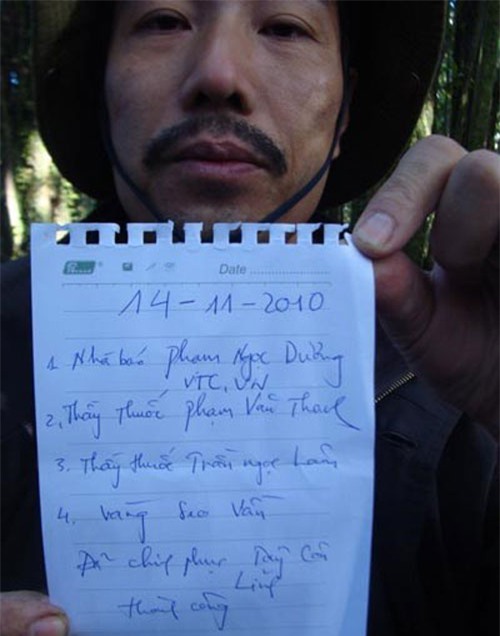 Date
14-11-2010
1. Nhà báo Phạm Ngọc Dương
VTC.VN
2. Thầy thuốc Phạm Văn Thach
3. Thầy thuốc Trần Ngọc Lâm
4. Vàng Seo Vần
Đã chinh phục Tây Côn
Lĩnh
thành công